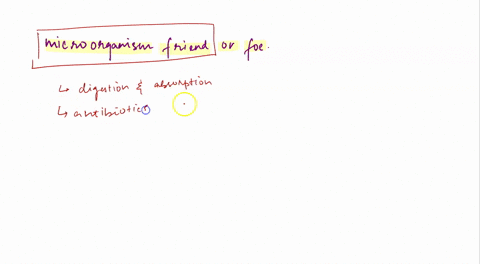 microorganism friend or foe.
↳ digestion & absorption
↳ antibiotics